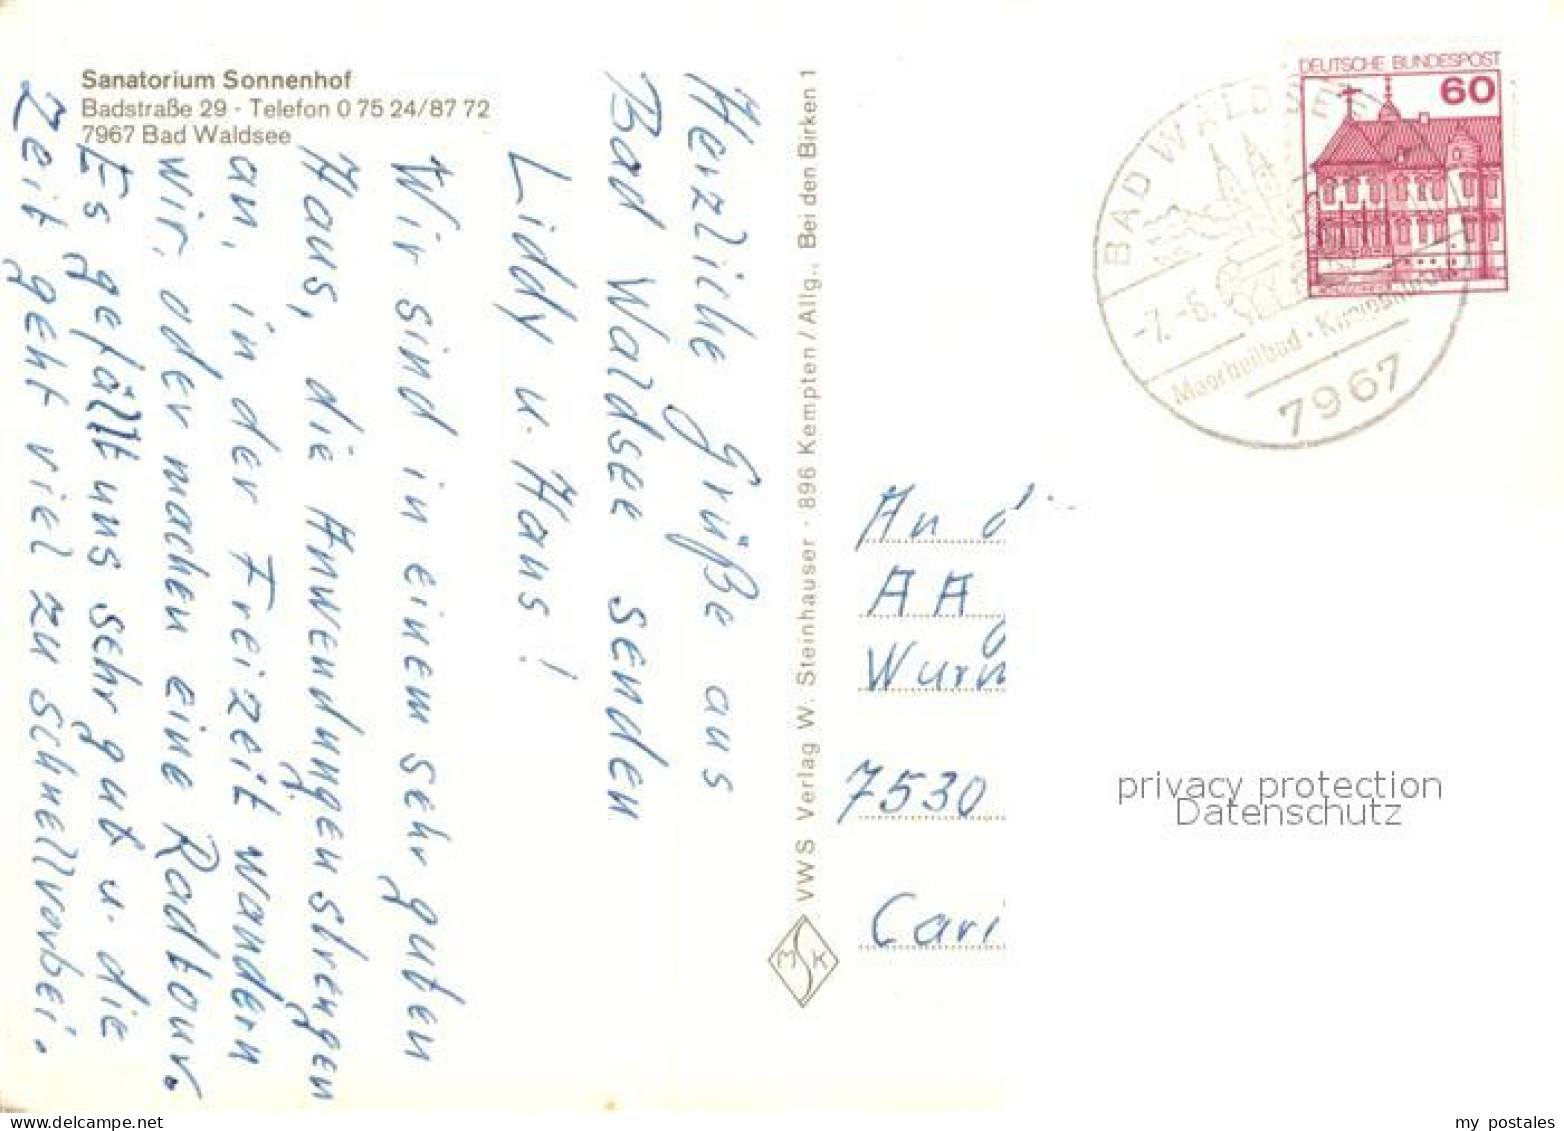 Sanatorium Sonnenhof
Badstraße 29 - Telefon 0 75 24/87 72
7967 Bad Waldsee
Herzliche Grüße aus
Bad Waldsee senden
Liddy u. Hans!
Wir sind in einem sehr guten
Haus, die Anwendungen strengen
an, in der Freizeit wandern
wir, oder machen eine Radtour.
Es gefällt uns sehr gut u. die
Zeit geht viel zu schnell vorbei.
VWS Verlag W. Steinhauser · 896 Kempten/Allg., Bei den Birken 1
MSK
DEUTSCHE BUNDESPOST
60
BAD WALDSEE
-7.-6.
Moorheilbad ·
7967
An
AA
7530
privacy protection
Datenschutz
my postales